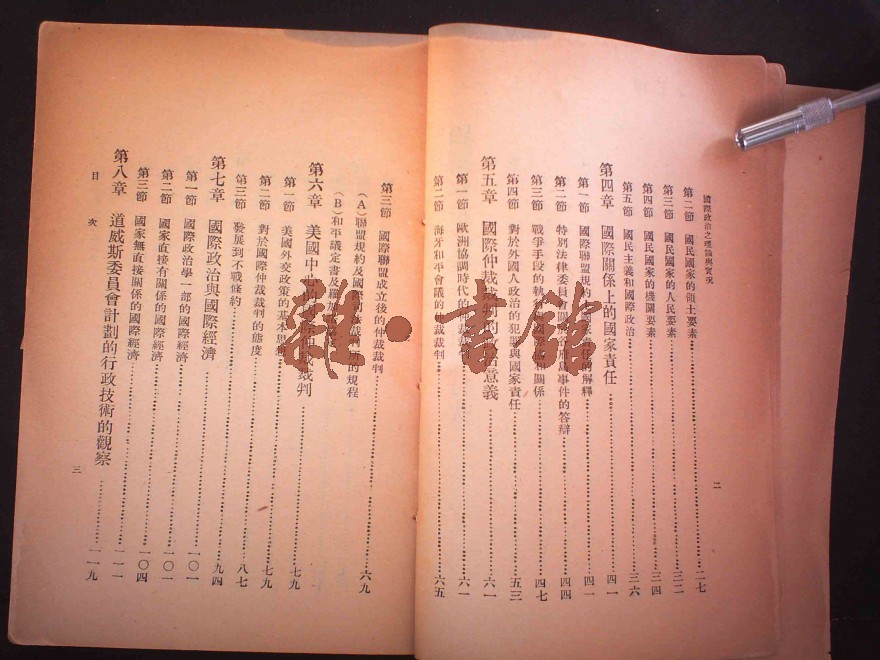 國際政治之理論與實況
第二節 國民國家的領土要素 二七
第三節 國民國家的人民要素 三二
第四節 國民國家的機關要素 三四
第五節 國民主義和國際政治 三六
第四章 國際關係上的國家責任 四一
第一節 國際聯盟規 任的解釋 四一
第二節 特別法律委員會 事件的答辯 四四
第三節 戰爭手段的執行 和關係 四七
第四節 對於外國人政治的犯罪與國家責任 五三
第五章 國際仲裁裁判的政治意義 六一
第一節 歐洲協調時代的 六一
第二節 海牙和平會議的 裁判 六五
二
第三節 國際聯盟成立後的仲裁裁判 六九
(A)聯盟規約及國際司法裁判所的規程
(B)和平議定書及羅加
第六章 美國中心的國際仲裁裁判 七九
第一節 美國外交政策的基本思 七九
第二節 對於國際仲裁裁判的態度 七九
第三節 發展到不戰條約 八七
第七章 國際政治與國際經濟 九四
第一節 國際政治學一部的國際經濟 一〇一
第二節 國家直接有關係的國際經濟 一〇一
第三節 國家無直接關係的國際經濟 一〇四
第八章 道威斯委員會計劃的行政技術的觀察 一一九
目次
三
雜·書館